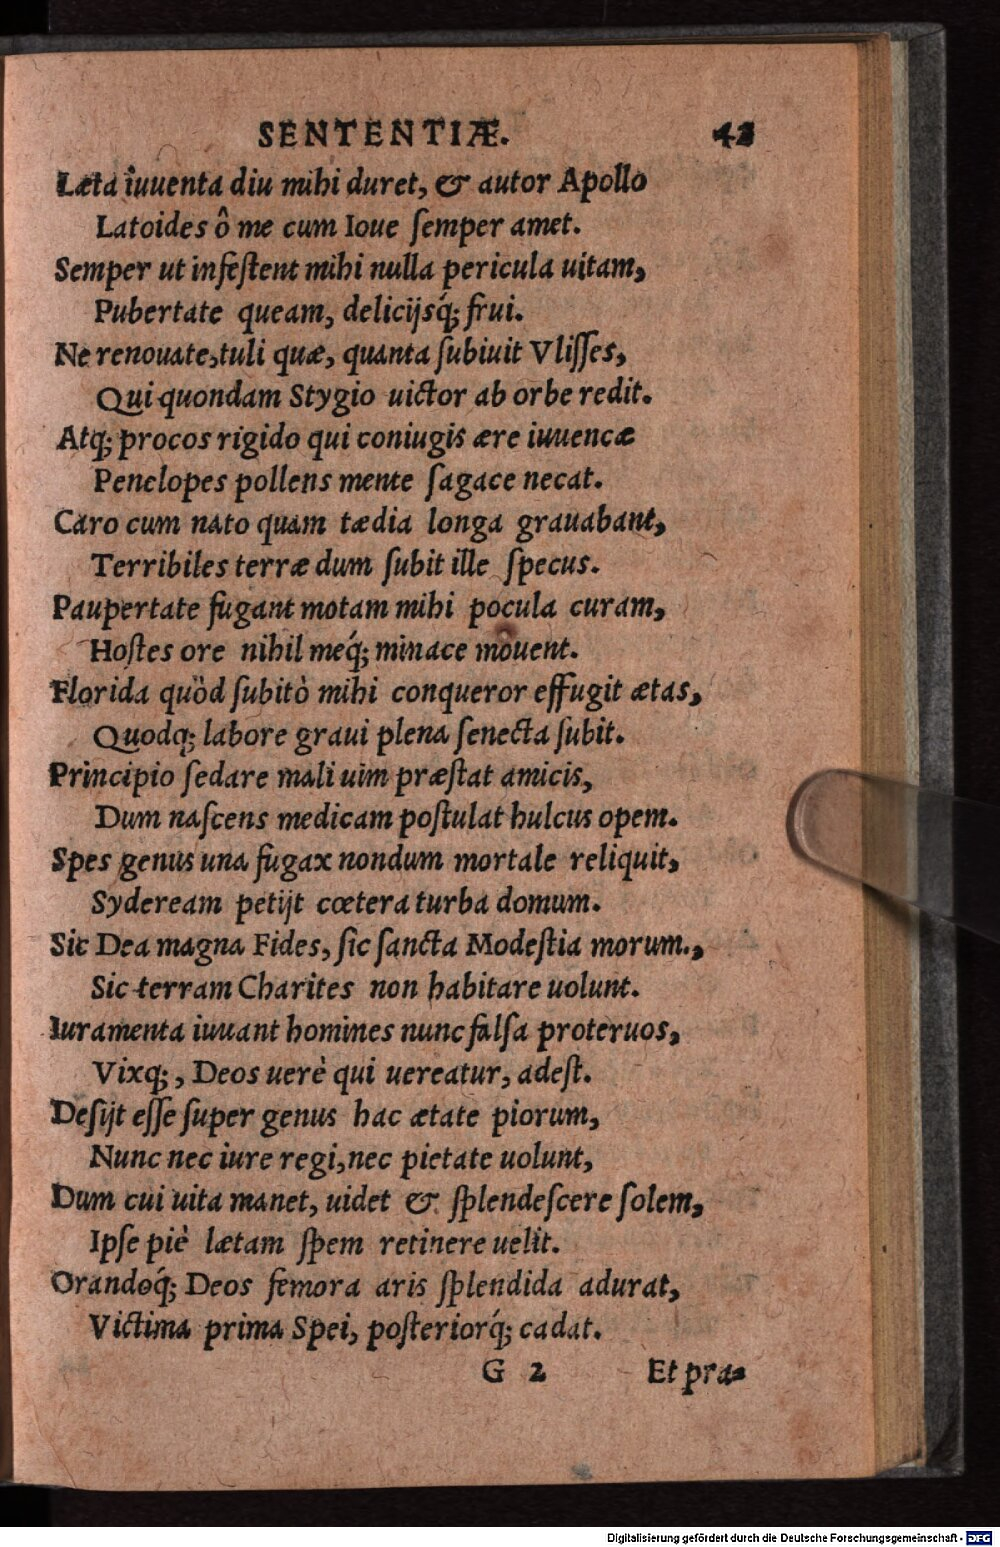 SENTENTIÆ. 43
Læta iuuenta diu mihi duret, & autor Apollo
Latoides ô me cum Ioue ſemper amet.
Semper ut infeſtent mihi nulla pericula uitam,
Pubertate queam, delicijsq́; frui.
Ne renouate, tuli quæ, quanta ſubiuit Vliſſes,
Qui quondam Stygio uictor ab orbe redit.
Atq; procos rigido qui coniugis ære iuuencæ
Penelopes pollens mente ſagace necat.
Caro cum nato quam tædia longa grauabant,
Terribiles terræ dum ſubit ille ſpecus.
Paupertate fugant motam mihi pocula curam,
Hoſtes ore nihil meq́; minace mouent.
Florida quòd ſubitò mihi conqueror effugit ætas,
Quodq; labore graui plena ſenecta ſubit.
Principio ſedare mali uim præſtat amicis,
Dum naſcens medicam poſtulat hulcus opem.
Spes genus una fugax nondum mortale reliquit,
Sydereàm petijt cœtera turba domum.
Sic Dea magna Fides, ſic ſancta Modeſtia morum.,
Sic terram Charites non habitare uolunt.
Iuramenta iuuant homines nunc falſa proteruos,
Vixq; , Deos uerè qui uereatur, adeſt.
Deſijt eſſe ſuper genus hac ætate piorum,
Nunc nec iure regi, nec pietate uolunt,
Dum cui uita manet, uidet & ſplendeſcere ſolem,
Ipſe piè lætam ſpem retinere uelit.
Orandoq́; Deos femora aris ſplendida adurat,
Victima prima Spei, poſteriorq́; cadat.
G 2 Et pra-
Digitalisierung gefördert durch die Deutsche Forschungsgemeinschaft - DFG